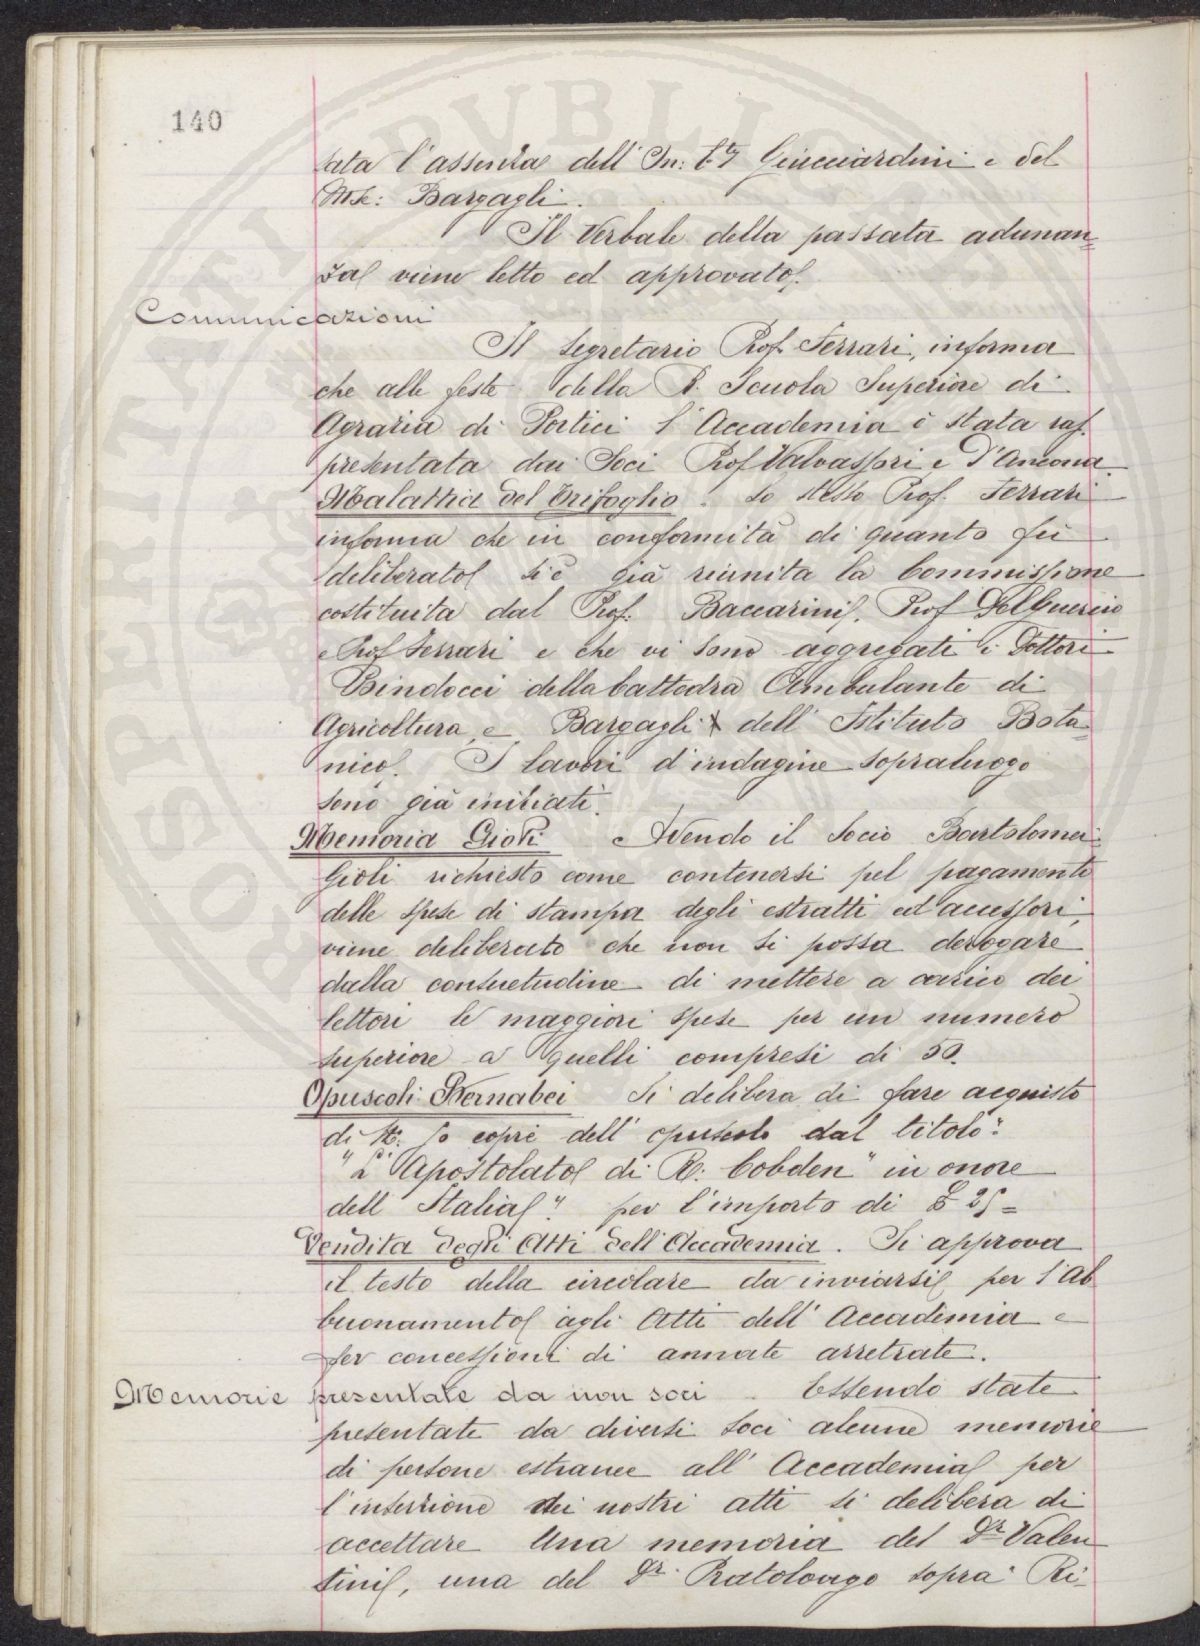 140
sata l'assenza dell' On: Guicciardini e del
M.se: Bargagli.
Il Verbale della passata adunan=
za viene letto ed approvato.
Comunicazioni
Il Segretario Prof. Ferrari, informa
che alle feste della R. Scuola Superiore di
Agraria di Portici l'Accademia è stata rap
presentata dai Soci Prof Valvassori e D'Ancona
Malattia del Trifoglio. Lo stesso Prof. Ferrari
informa che in conformità di quanto fù
deliberato si è già riunita la Commissione
costituita dal Prof. Baccarini, Prof Del Guercio
e Prof Ferrari e che vi sono aggregati i Dottori
Bindocci della Cattedra Ambulante di
Agricoltura, e Bargagli dell' Istituto Bota=
nico. I lavori d'indagine sopraluogo
sono già iniziati.
Memoria Gioli Avendo il Socio Bartolomei
Gioli richiesto come contenersi pel pagamento
delle spese di stampa degli estratti ed accessori,
viene deliberato che non si possa derogare
dalla consuetudine di mettere a carico dei
lettori le maggiori spese per un numero
superiore a quelli compresi di 50.
Opuscoli Bernabei Si delibera di fare acquisto
di N. 50 copie dell' opuscolo dal titolo:
"L'Apostolato di R. Cobden" in onore
dell Italia". per l'importo di £ 25=
Vendita degli Atti dell'Accademia. Si approva
il testo della circolare da inviarsi per l'Ab
buonamento agli Atti dell' Accademia e
per concessioni di annate arretrate.
Memorie presentate da non soci Essendo state
presentate da diversi Soci alcune memorie
di persone estranee all' Accademia per
l'inserzione dei nostri atti si delibera di
accettare Una memoria del Dr Valen
tini, una del Dr. Ratolongo sopra Ri=
SPERITATI PVBLICAE